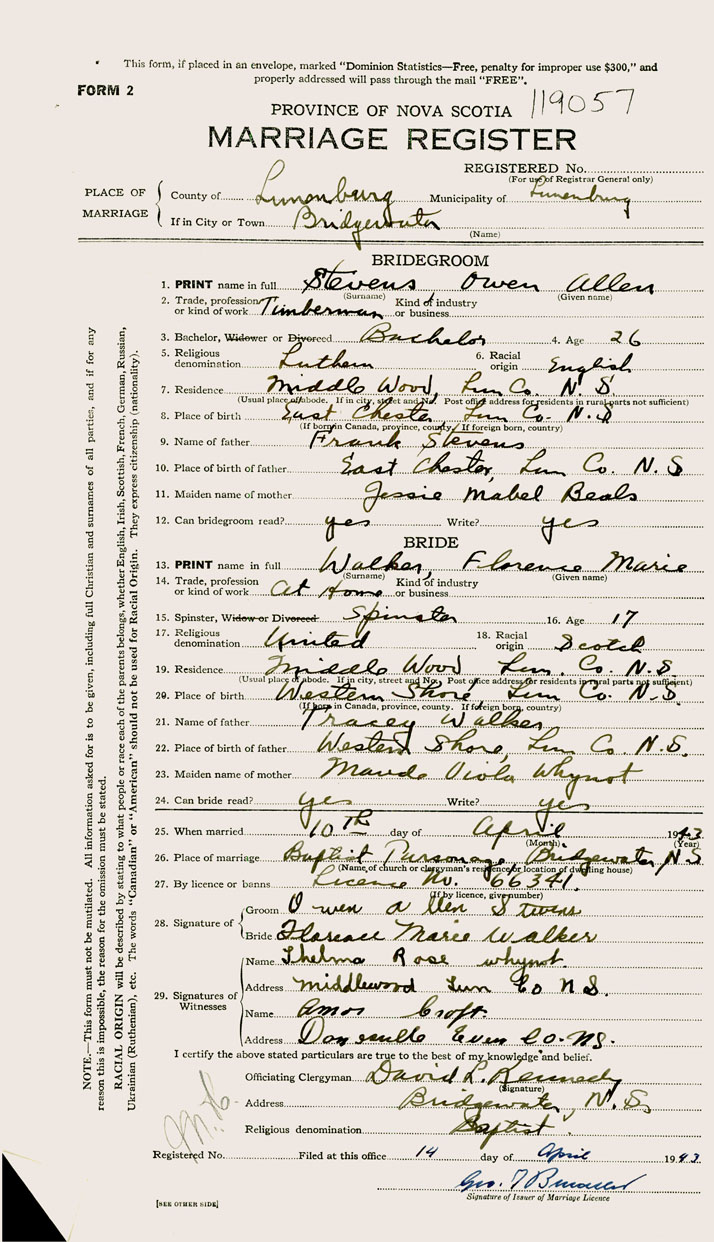 This form, if placed in an envelope, marked "Dominion Statistics—Free, penalty for improper use $300," and
properly addressed will pass through the mail "FREE".
FORM 2
119057
PROVINCE OF NOVA SCOTIA
MARRIAGE REGISTER
REGISTERED No.
(For use of Registrar General only)
PLACE OF MARRIAGE
County of Lunenburg Municipality of Lunenburg
If in City or Town Bridgewater
(Name)
BRIDEGROOM
1. PRINT name in full Stevens Owen Allen
(Surname) (Given name)
2. Trade, profession or kind of work Timberman Kind of industry or business
3. Bachelor, Widower or Divorced Bachelor 4. Age 26
5. Religious denomination Luthern 6. Racial origin English
7. Residence Middle Wood, Lun Co. N. S
(Usual place of abode. If in city, street and No. Post office address for residents in rural parts not sufficient)
8. Place of birth East Chester, Lun Co. N. S
(If born in Canada, province, county. If foreign born, country)
9. Name of father Frank Stevens
10. Place of birth of father East Chester, Lun Co. N. S
11. Maiden name of mother Jessie Mabel Beals
12. Can bridegroom read? yes Write? yes
BRIDE
13. PRINT name in full Walker, Florence Marie
(Surname) (Given name)
14. Trade, profession or kind of work At Home Kind of industry or business
15. Spinster, Widow or Divorced Spinster 16. Age 17
17. Religious denomination United 18. Racial origin Scotch
19. Residence Middle Wood Lun. Co. N. S.
(Usual place of abode. If in city, street and No. Post office address for residents in rural parts not sufficient)
20. Place of birth Western Shore, Lun Co. N. S.
(If born in Canada, province, county. If foreign born, country)
21. Name of father Tracey Walker
22. Place of birth of father Western Shore, Lun Co. N. S.
23. Maiden name of mother Maude Viola Whynot
24. Can bride read? yes Write? yes
25. When married 10th day of April 1943
(Month) (Year)
26. Place of marriage Baptist Parsonage, Bridgewater, N S
(Name of church or clergyman's residence or location of dwelling house)
27. By licence or banns License No. 66341.
(If by licence, give number)
28. Signature of
Groom Owen Allen Stevens
Bride Florence Marie Walker
29. Signatures of Witnesses
Name Thelma Rose whynot
Address middlewood Lun Co N S.
Name Amos Croft.
Address Co. NS.
I certify the above stated particulars are true to the best of my knowledge and belief.
Officiating Clergyman David L. Kennedy
(Signature)
Address Bridgewater, N. S.
Religious denomination Baptist.
Registered No. Filed at this office 14 day of April 1943
Geo.
Signature of Issuer of Marriage Licence
[SEE OTHER SIDE]
NOTE.—This form must not be mutilated. All information asked for is to be given, including full Christian and surnames of all parties, and if for any
reason this is impossible, the reason for the omission must be stated.
RACIAL ORIGIN will be described by stating to what people or race each of the parents belongs, whether English, Irish, Scottish, French, German, Russian,
Ukrainian (Ruthenian), etc. The words "Canadian" or "American" should not be used for Racial Origin. They express citizenship (nationality).